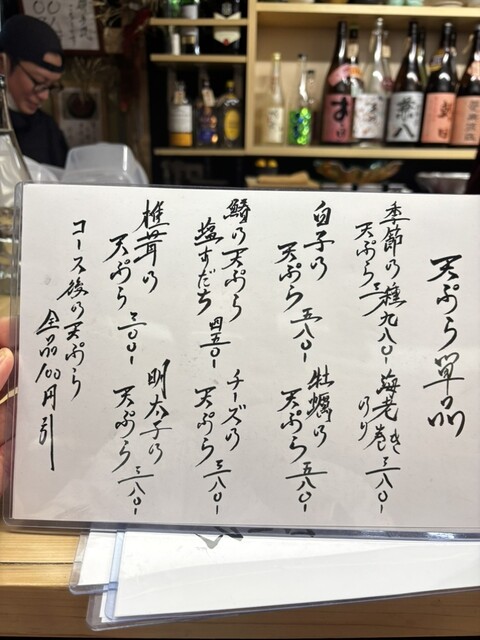 天ぷら単品
季節の種
天ぷら 九八〇-
海老のり巻き 三八〇-
白子の
天ぷら 五八〇-
牡蠣の
天ぷら 五八〇-
鱚の天ぷら
塩すだち 四五〇-
チーズの
天ぷら 三八〇-
椎茸の
天ぷら 三〇〇-
明太子の
天ぷら 三八〇-
コース後の天ぷら
全品100円引
兼八